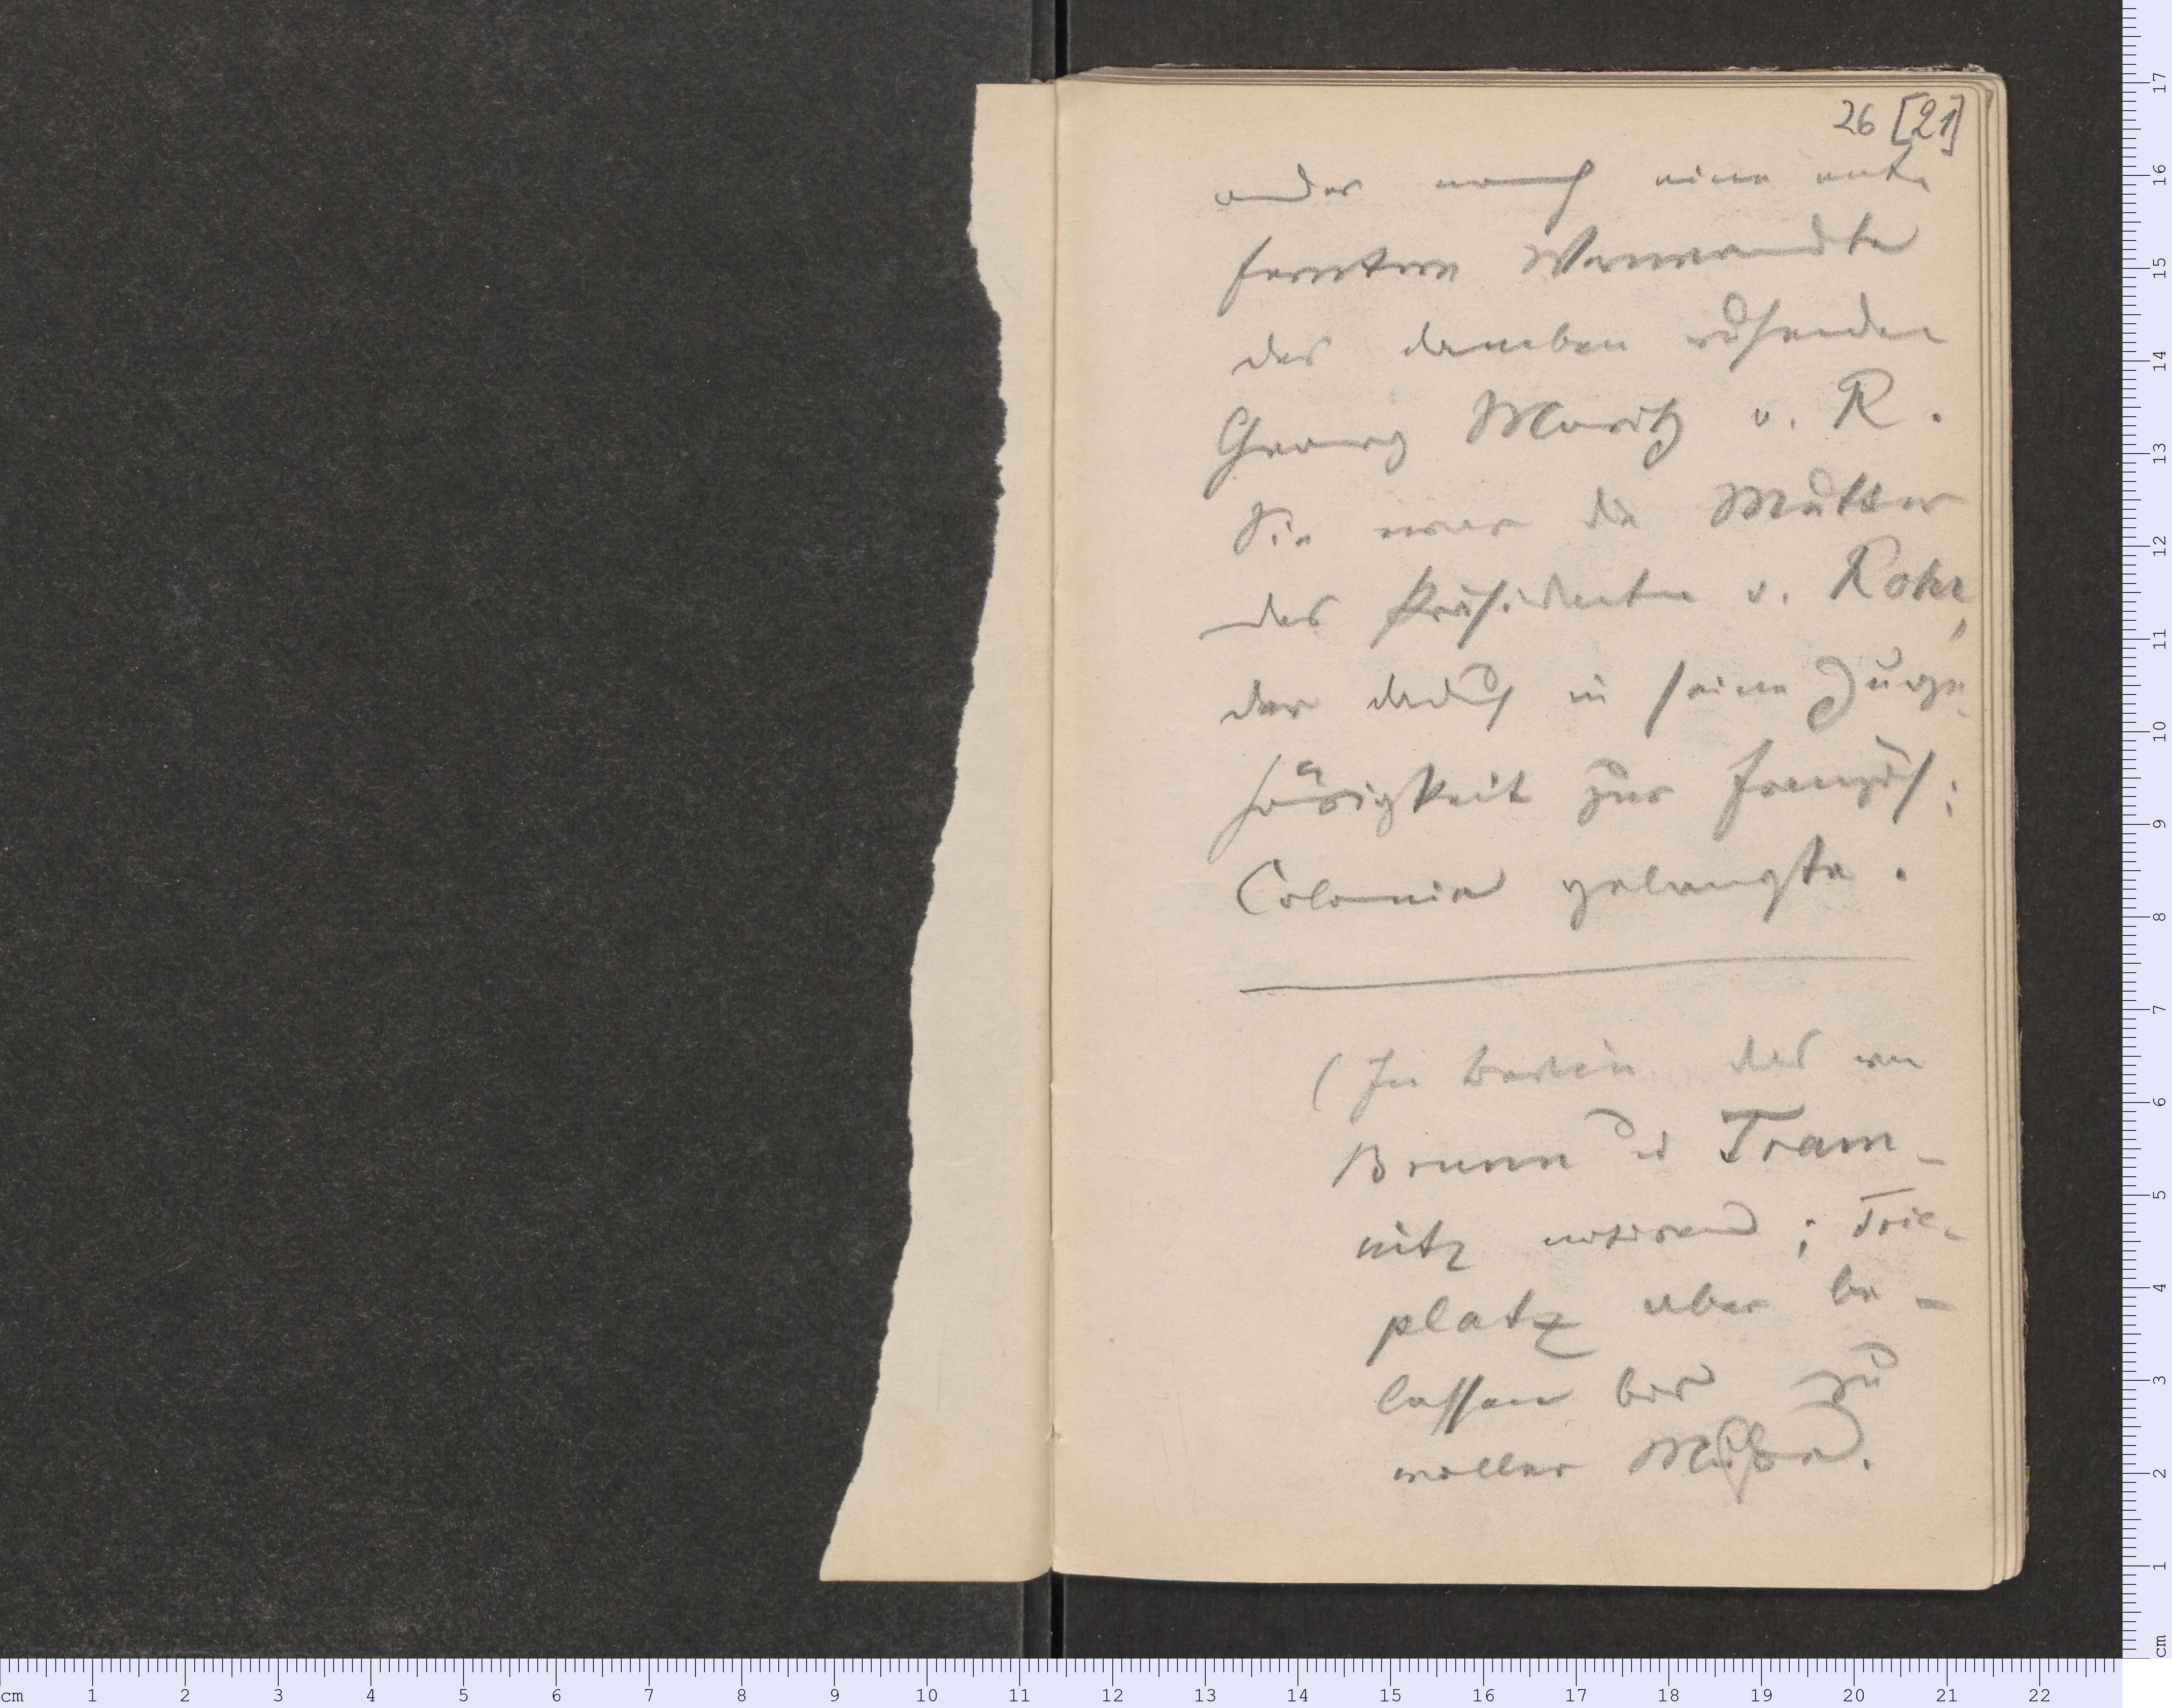 26 [21]
oder noch eine ent-
ferntere Verwandte
des daneben ruhenden
Georg Moritz v. R.
Sie war die Mutter
des Präsidenten v. Rohr,
der dadurch in seine Zuge-
hörigkeit zur französ:
Colonie gelangte.
(In Berlin das von
Brunn u Tram-
nitz notirend; Trie-
platz aber be-
lassen bis zu
voller Muße).